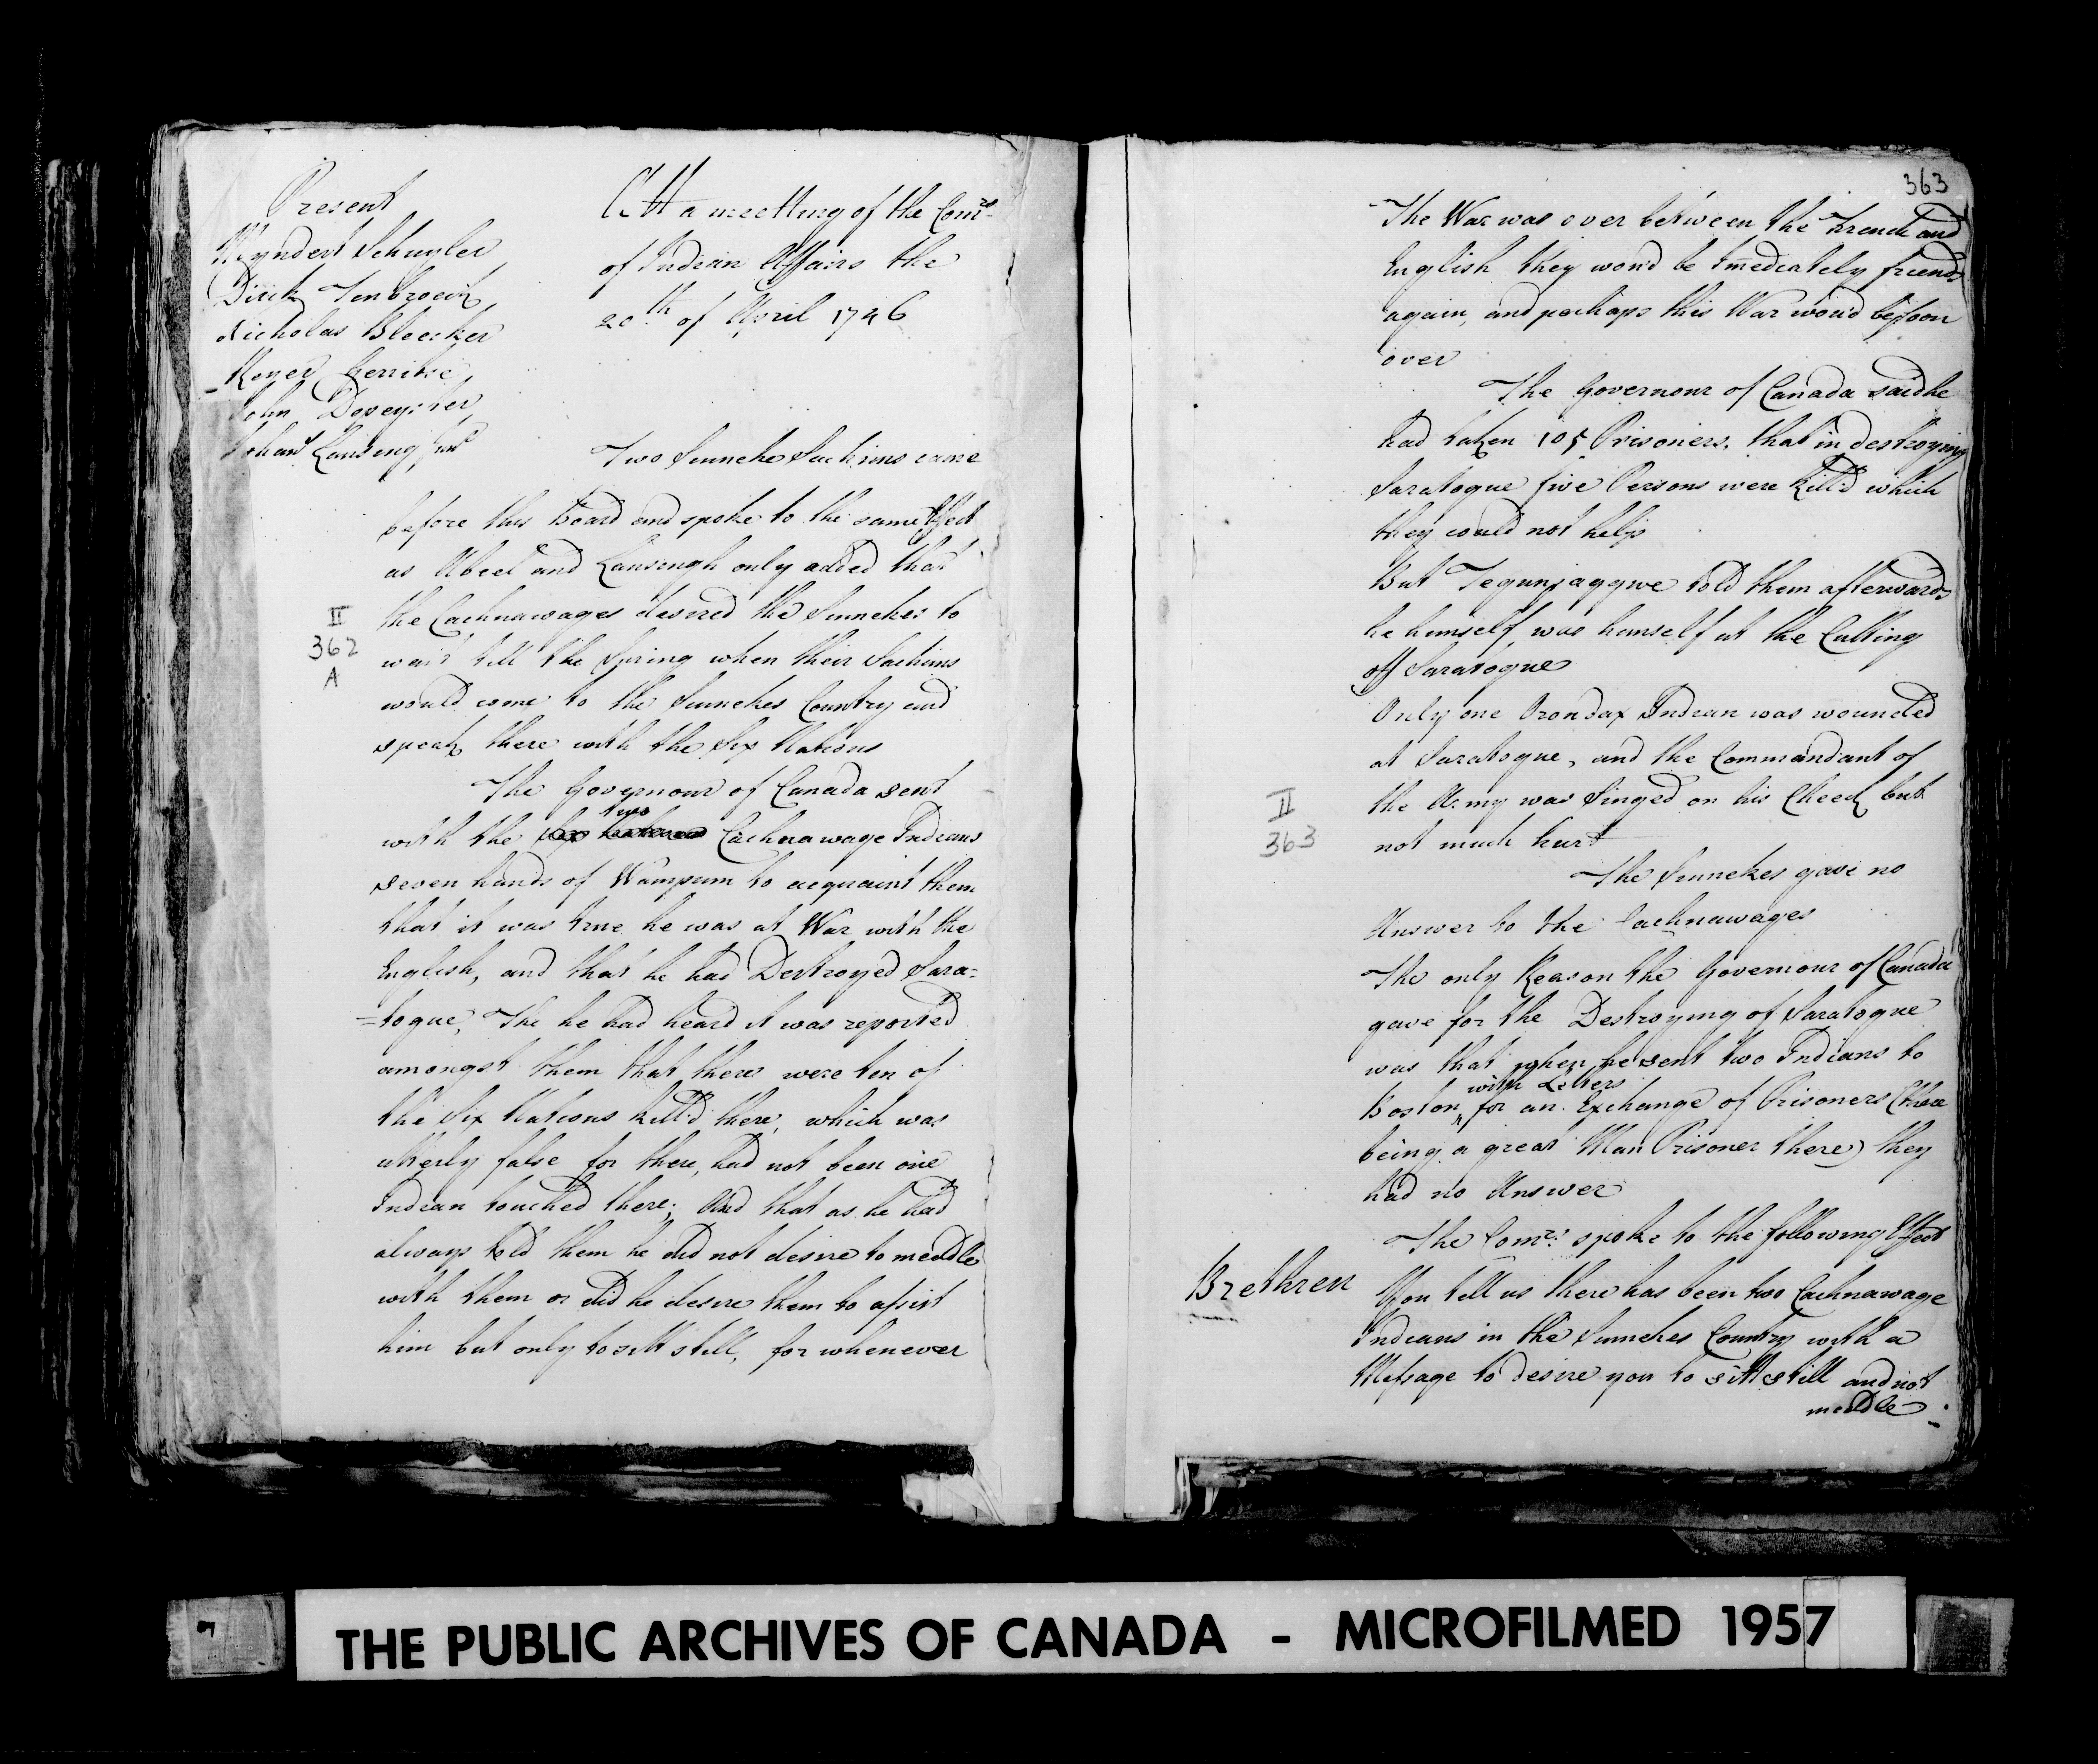 Present
Myndert Schuyler
Dirck Tenbroeck
Nicholas Bleecker
Reyer Gerritse
John Depeyster
Johans Lansing Junr
Att a meetting of the Comrs
of Indian Affairs the
20th of April 1746
Two Sinneke Sachims came
before this Board and spoke to the same Effect
as Abeel and Lansengh only added that
the Cachnawages desired the Sinnekes to
wait till the Spring when their Sachims
would come to the Sinnekes Country and
speak there with the Six Nations
II
362
A
The Governour of Canada sent
two
with the Cachnawage Indians
seven hands of Wampum to acquaint them
that it was true he was at War with the
English, and that he had Destroyed Sara=
=togue, Tho he had heard it was reported
amongst them that there were ten of
the Six Nations kill'd there, which was
utterly false for there had not been one
Indian touched there; And that as he had
always told them he did not desire to meddle
with them or did he desire them to assist
him but only to sitt still, for whenever
363
The War was over between the French and
English they wou'd be Immediately friends
again, and perhaps this War wou'd be soon
over
The Governour of Canada said he
had taken 105 Prisoners, that in destroying
Saratogue five Persons were kill'd which
they could not help
But Tegunjaggwe told them afterwards
he himself was himself at the Cutting
off Saratogue
Only one Orondax Indian was wounded
at Saratogue, and the Commandant of
the Army was Singed on his Cheek but
not much hurt
II
363
The Sinnekes gave no
Answer to the Cachnawages
The only Reason the Governour of Canada
gave for the Destroying of Saratogue
was that when he sent two Indians to
with Letters
Boston for an Exchange of Prisoners (there
being a great Man Prisoner there) they
had no Answer
The Comrs spoke to the following Effect
Brethren
You tell us there has been two Cachnawage
Indians in the Sinnekes Country with a
Message to desire you to sitt still and not
meddle
THE PUBLIC ARCHIVES OF CANADA - MICROFILMED 1957